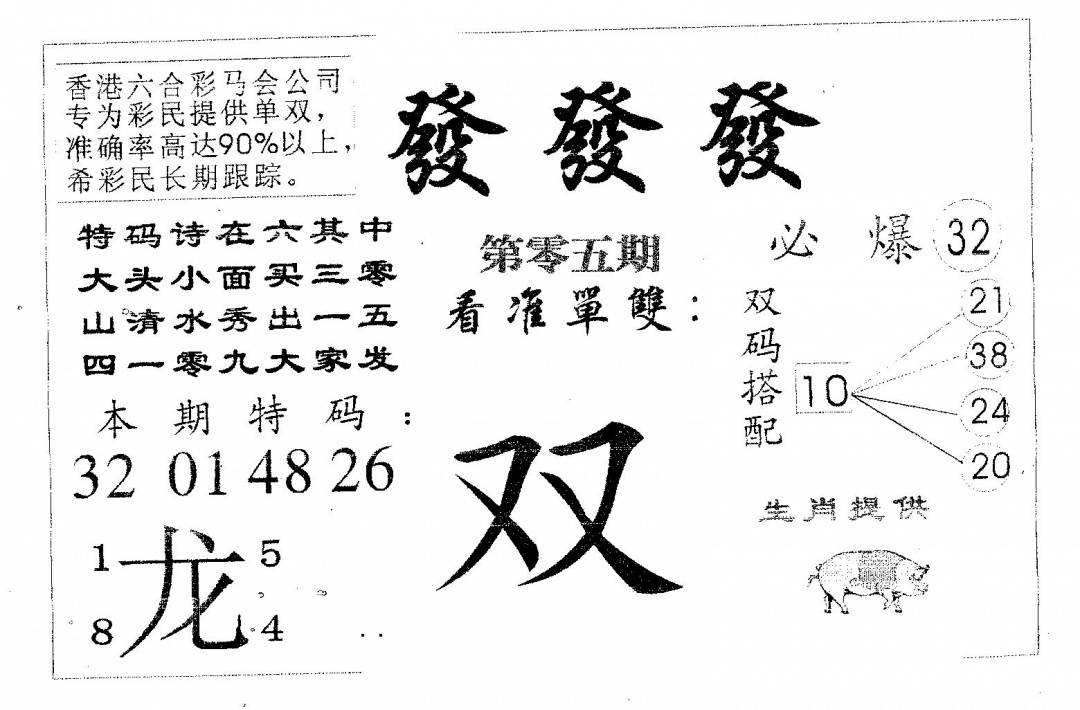 香港六合彩马会公司
专为彩民提供单双，
准确率高达90%以上，
希彩民长期跟踪。
發 發 發
特码诗在六其中
大头小面买三零
山清水秀出一五
四一零九大家发
本期特码：
32 01 48 26
1 龙 5
8 4
第零五期
看准單雙：
双
必爆 32
双码搭配
10
21
38
24
20
生肖提供